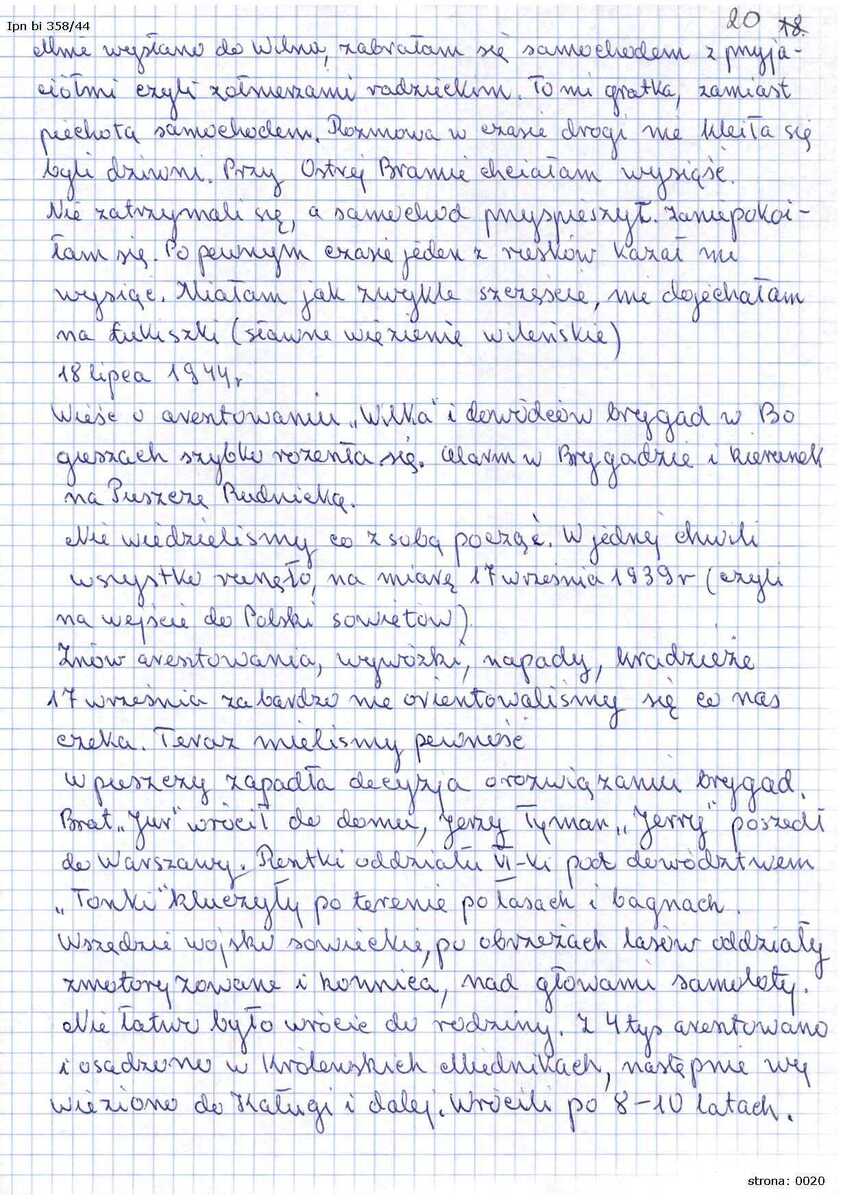 Ipn bi 358/44
20 18.
Mnie wysłano do Wilna, zabrałam się samochodem z przyja-
ciółmi czyli żołnierzami radzieckim. To mi gratka, zamiast
piechotą samochodem. Rozmowa w czasie drogi nie kleiła się
byli dziwni. Przy Ostrej Bramie chciałam wysiąść.
Nie zatrzymali się, a samochod przyspieszył. Zaniepokoi-
łam się. Po pewnym czasie jeden z rusków kazał mi
wysiąć. Miałam jak zwykle szczęście, nie dojechałam
na Łukiszki (sławne więzienie wileńskie)
18 lipca 1944r
Wieść o aresztowaniu „Wilka" i dowódców brygad w Bo
guszach szybko rozeszła się. Alarm w Brygadzie i kierunek
na Puszczę Rudnicką.
Nie wiedzieliśmy co z sobą począć. W jednej chwili
wszystko runęło, na miarę 17 września 1939r (czyli
na wejście do Polski sowietów)
Znów aresztowania, wywózki, napady, kradzieże
17 września za bardzo nie orientowaliśmy się co nas
czeka. Teraz mieliśmy pewność
W puszczy zapadła decyzja o rozwiązaniu brygad.
Brat „Jur" wrócił do domu, Jerzy Tyman „Jerry" poszedł
do Warszawy. Resztki oddziału VI-ki pod dowództwem
„Tońki" kluczyły po terenie po lasach i bagnach.
Wszędzie wojsko sowieckie, po obrzeżach lasów oddziały
zmotoryzowane i konnica, nad głowami samoloty.
Nie łatwo było wrócić do rodziny. Z 4 tys aresztowano
i osądzono w Królewskich Miednikach, następnie wy
wieziono do Kaługi i dalej. Wrócili po 8-10 latach.
strona: 0020